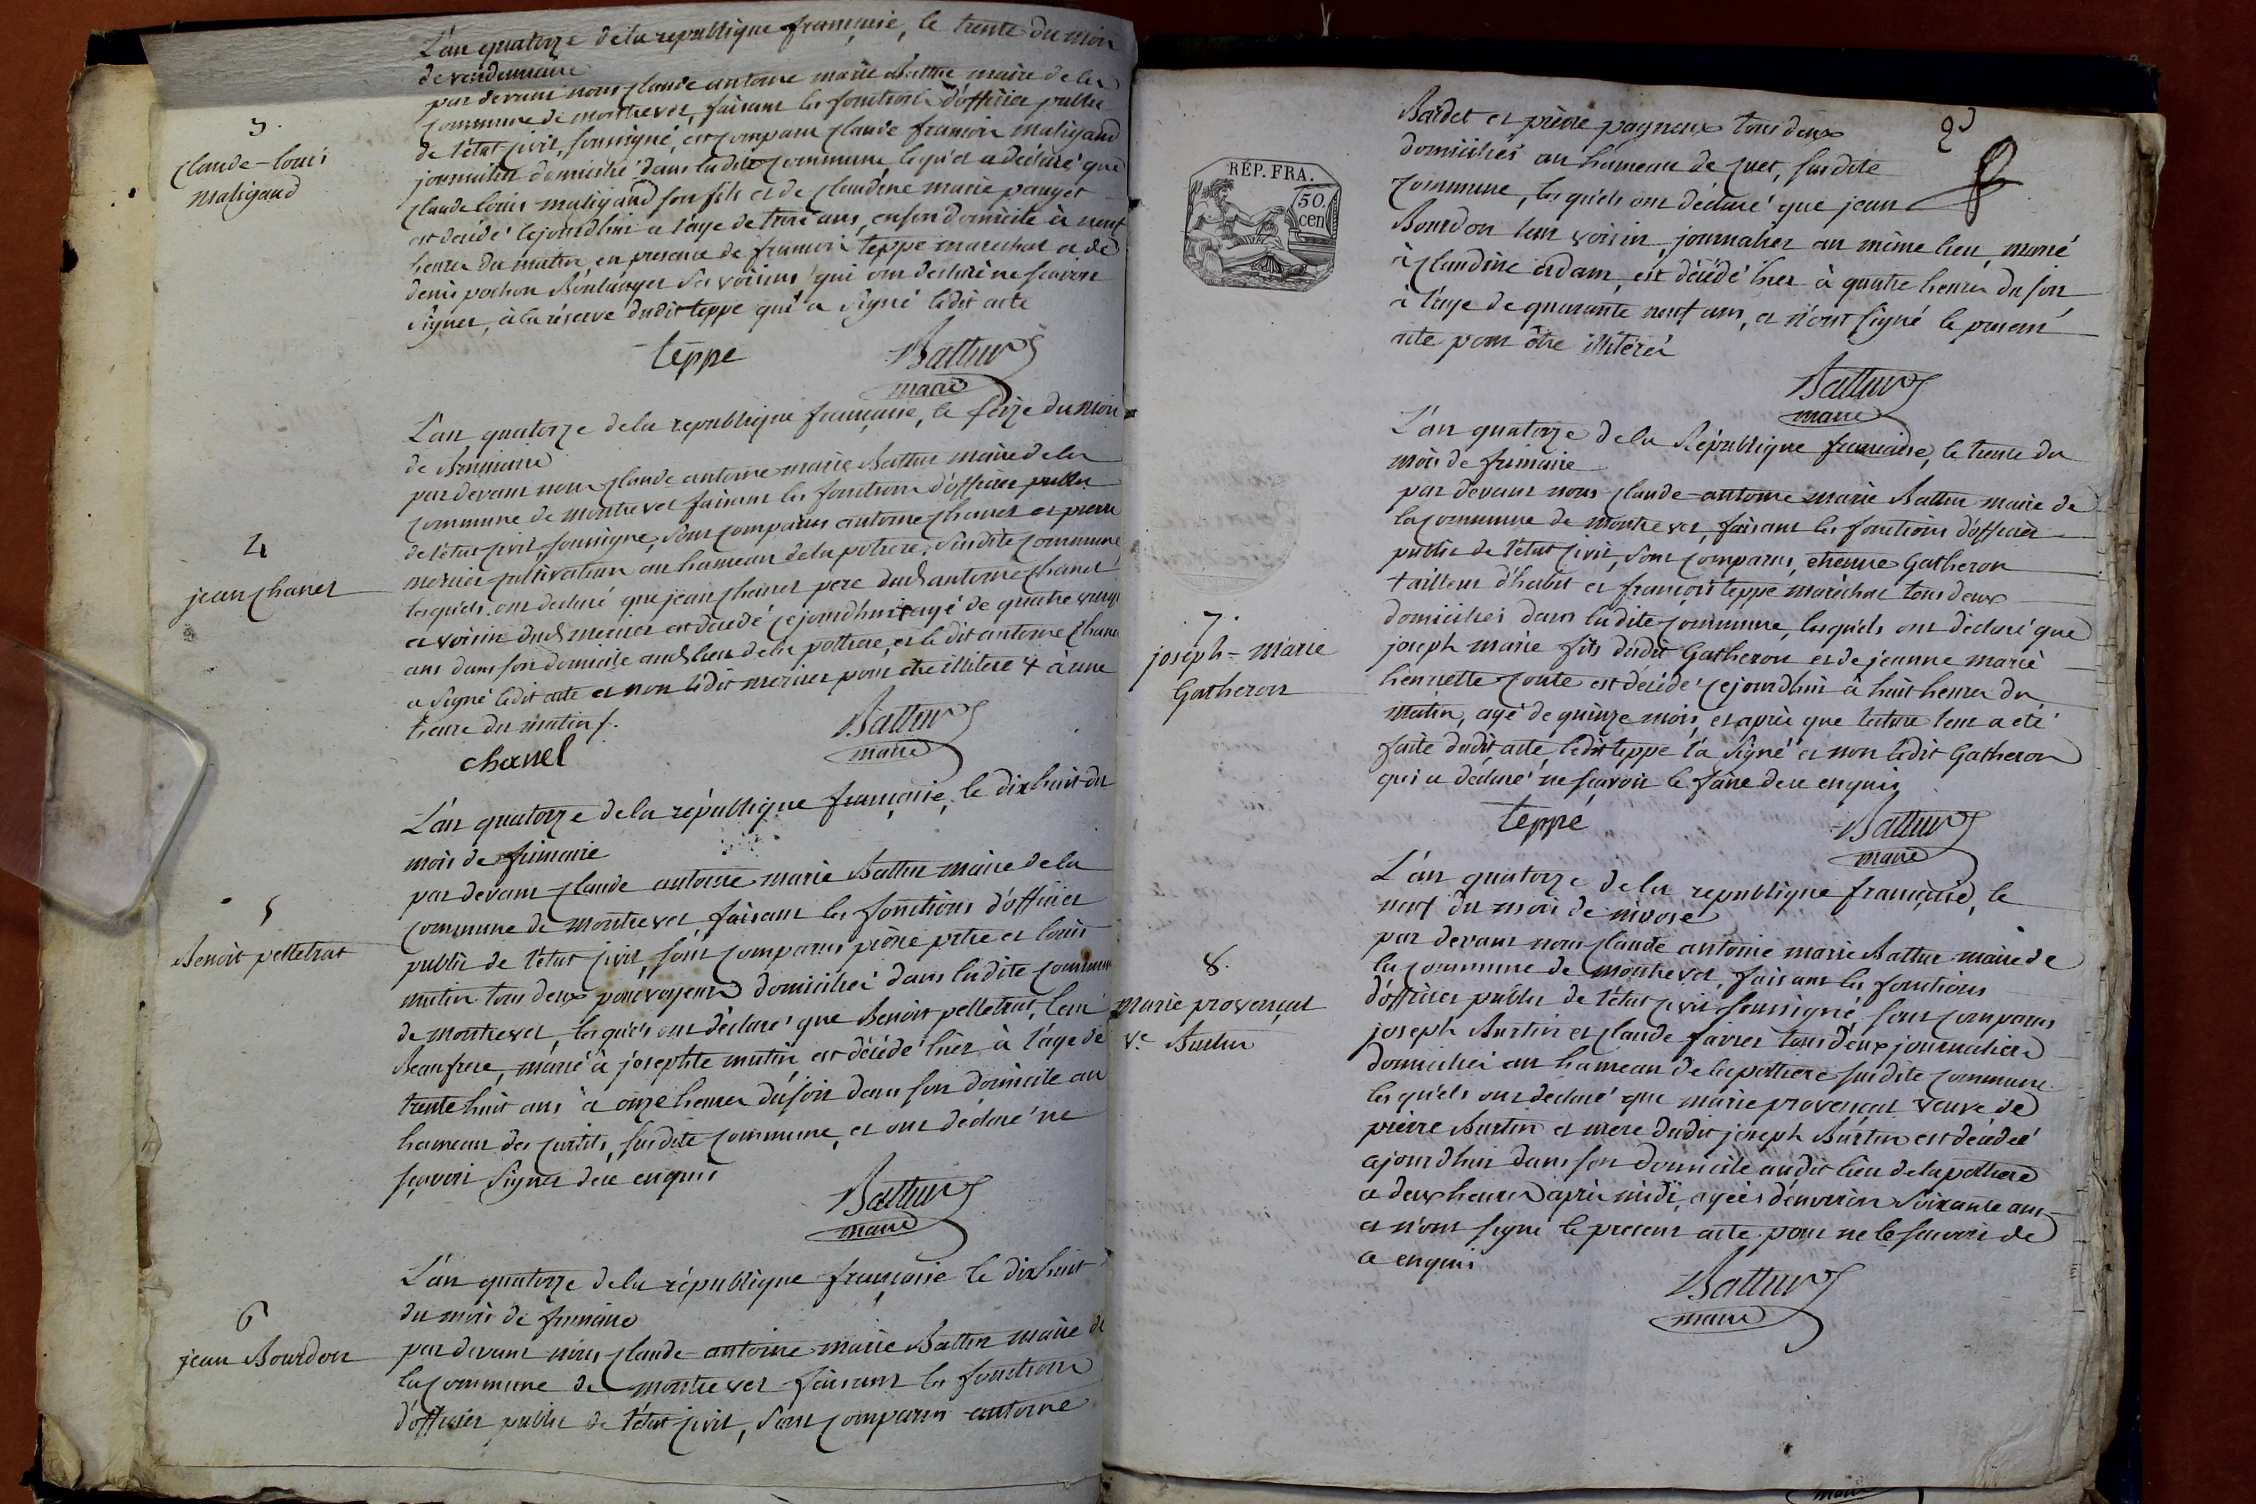 L'an quatorze de la republique française, le trente du mois
de vendemiaire
par devant nous claude antoine marie Battur maire de la
commune de montrevel, faisant les fonctions d'officier public
de l'état civil, soussigné, est comparu claude françois maligand
journalier domicilié dans ladite commune lequel a déclaré que
claude louis maligand son fils et de claudine marie pauget
est decédé cejourdhui a l'age de trois ans, en son domicile à neuf
heures du matin, en presence de françois teppe marechal et de
denis pochon Boulanger ses voisins qui ont declaré ne scavoir
signer, à la réserve dudit teppe qui a signé ledit acte
3.
claude-louis
maligand
teppe Battur
maire
L'an quatorze de la republique française, le seize du mois
de Brumaire
par devant nous claude antoine marie Battur maire de la
commune de montrevel faisant les fonctions d'officier public
de l'etat civil, soussigné, sont comparus antoine chanel et pierre
mercier cultivateurs au hameau de la potiere, susdite commune
lesquels ont declaré que jean chanel pere dud antoine chanel
et voisin dud mercier est decedé cejourdhui + agé de quatre vingt
ans dans son domicile aud lieu de la pottiere, et le dit antoine chanel
a signé ledit acte et non ledit mercier pour être illitere + à une
heure du matin /.
4
jean chanel
chanel Battur
maire
L'an quatorze de la république française, le dix huit du
mois de frimaire
par devant claude antoine marie Battur maire de la
commune de montrevel, faisant les fonctions d'officier
public de l'état civil, sont comparus pierre pitre et louis
mutin tous deux pourvoyeurs domiciliés dans ladite commune
de montrevel, lesquels ont déclaré que Benoit pelletrat, leur
Beaufrere, marié à josephte mutin, est décédé hier à l'age de
trente huit ans à onze heures du soir dans son domicile au
hameau des curtils, susdite commune, et ont déclaré ne
scavoir signer de ce enquis
5
Benoit pelletrat
Battur
maire
L'an quatorze de la république française le dix huit
du mois de frimaire
par devant nous claude-antoine marie Battur maire de
la commune de montrevel faisant les fonctions
d'officier public de l'état civil, sont comparus antoine
6
jean Bourdon
2d
RÉP. FRA.
50
cen
Bardet et pierre pagneux tous deux
domiciliés au hameau de cuet, susdite
commune, lesquels ont déclaré que jean
Bourdon leur voisin, journalier au même lieu, marié
à claudine adam, est décédé hier à quatre heures du soir
à l'age de quarante neuf ans, et n'ont signé le present
acte pour être illiterés
Battur
maire
L'an quatorze de la République française, le trente du
mois de frimaire
par devant nous claude-antoine marie Battur maire de
la commune de montrevel, faisant les fonctions d'officier
public de l'état civil, sont comparus, etienne Gatheron
tailleur d'habit et françois teppe maréchal tous deux
domiciliés dans ladite commune, lesquels ont declaré que
joseph marie fils dudit Gatheron et de jeanne marie
henriette conte est décédé cejourdhui à huit heures du
matin, agé de quinze mois, et après que lecture leur a eté
faite dudit acte, ledit teppe l'a signé et non ledit Gatheron
qui a déclaré ne scavoir le faire de ce enquis
7.
joseph-marie
Gatheron
teppe Battur
maire
L'an quatorze de la republique française, le
neuf du mois de nivose
par devant nous claude antoine marie Battur maire de
la commune de montrevel, faisant les fonctions
d'officier public de l'état civil soussigné sont comparus
joseph Burtin et claude favier tous deux journaliers
domiciliés au hameau de la pottiere susdite commune
lesquels ont declaré que marie provençat veuve de
pierre Burtin et mere dudit joseph Burtin est décédée
cejourdhui dans son domicile audit lieu de la pottiere
a deux heures après midi, agée d'environ soixante ans
et n'ont signé le present acte pour ne le scavoir de
ce enquis
8.
marie provençat
Ve Burtin
Battur
maire